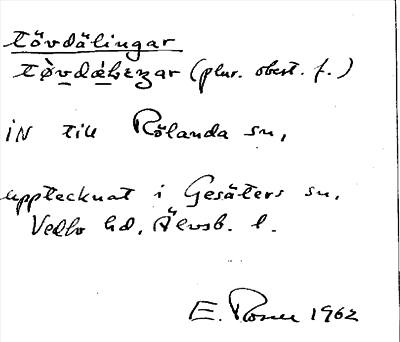 tövdälingar
tø̀vdæ̀lıŋar (plur. obest. f.)
iN till Rölanda sn,
upptecknat i Gesäters sn.
Vedbo hd. Älvsb. l.
E. Rosen 1962